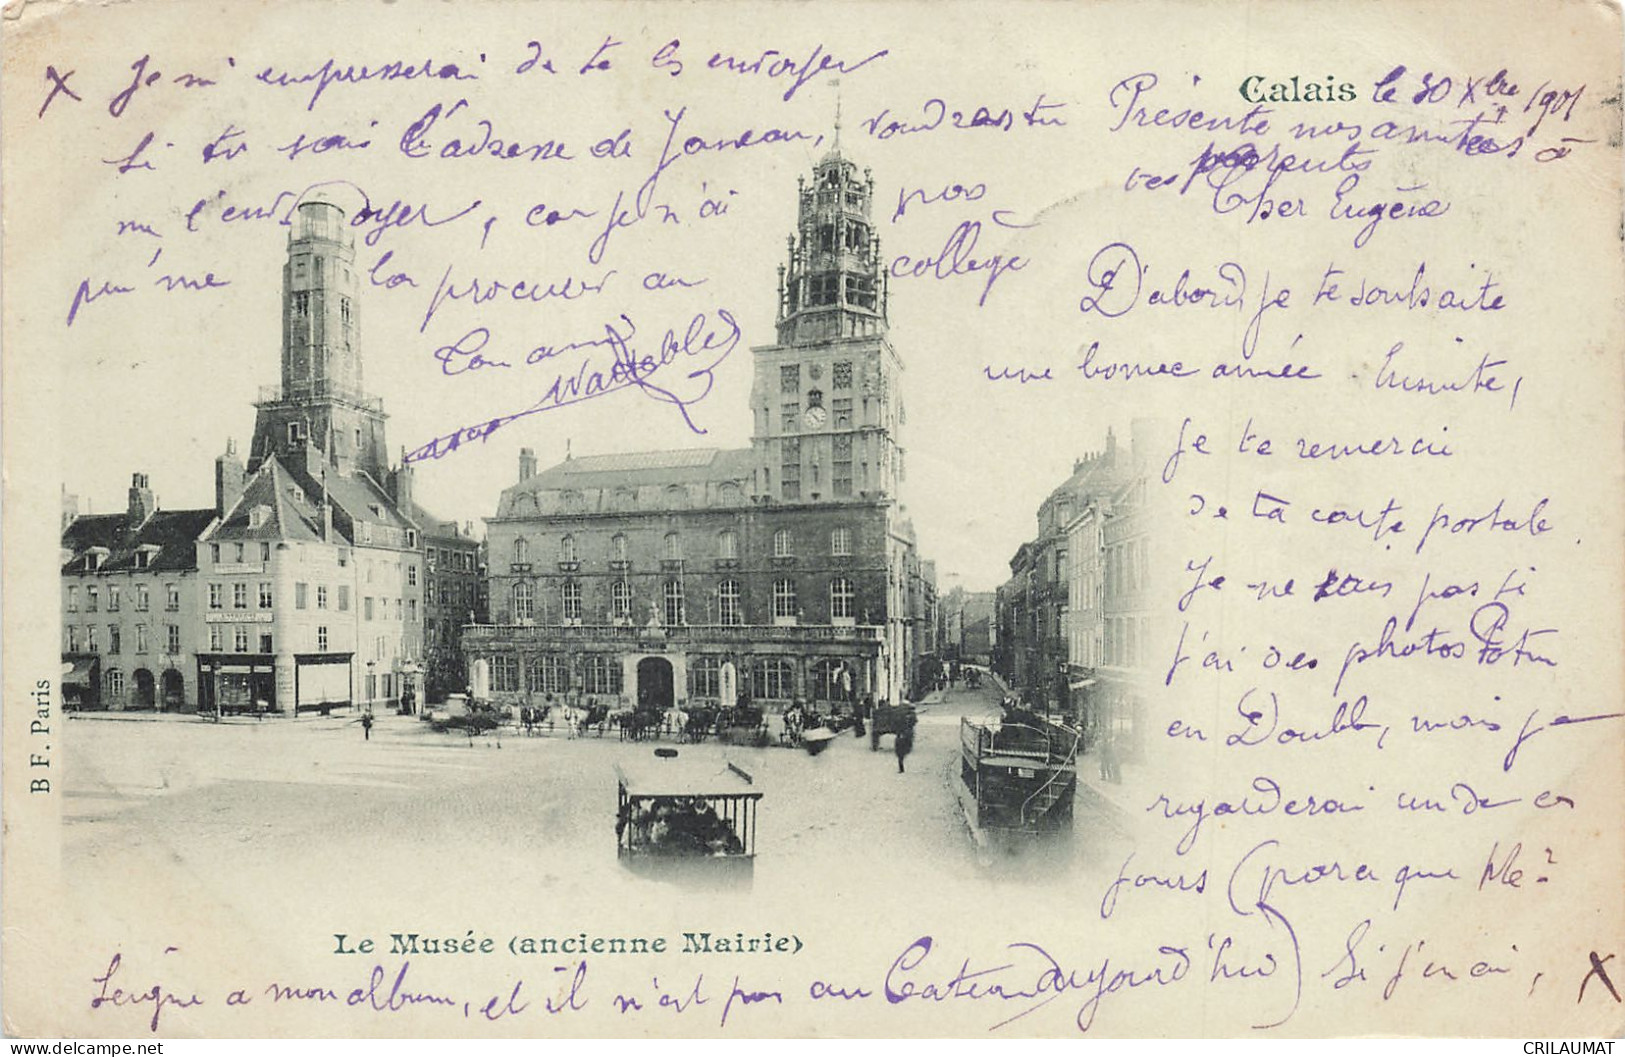 Calais le 30 Xbre 1901
Présente nos amitiés à
tes parents
Cher Eugène
D'abord je te souhaite
une bonne année. Ensuite,
je te remercie
de ta carte postale.
Je ne sais pas si
j'ai des photos Potin
en Double, mais je
regarderai un de ces
jours (parce que Mle
Leigne a mon album, et il n'est pas au Cateau aujourd'hui) Si j'en ai, X
X Je m'empresserai de te les envoyer
Si tu sais l'adresse de Janeau, voudras tu
me l'envoyer, car je n'ai pas
pu me la procurer au collège
Ton ami
Le Musée (ancienne Mairie)
B F. Paris
delcampe.net
CRILAUMAT